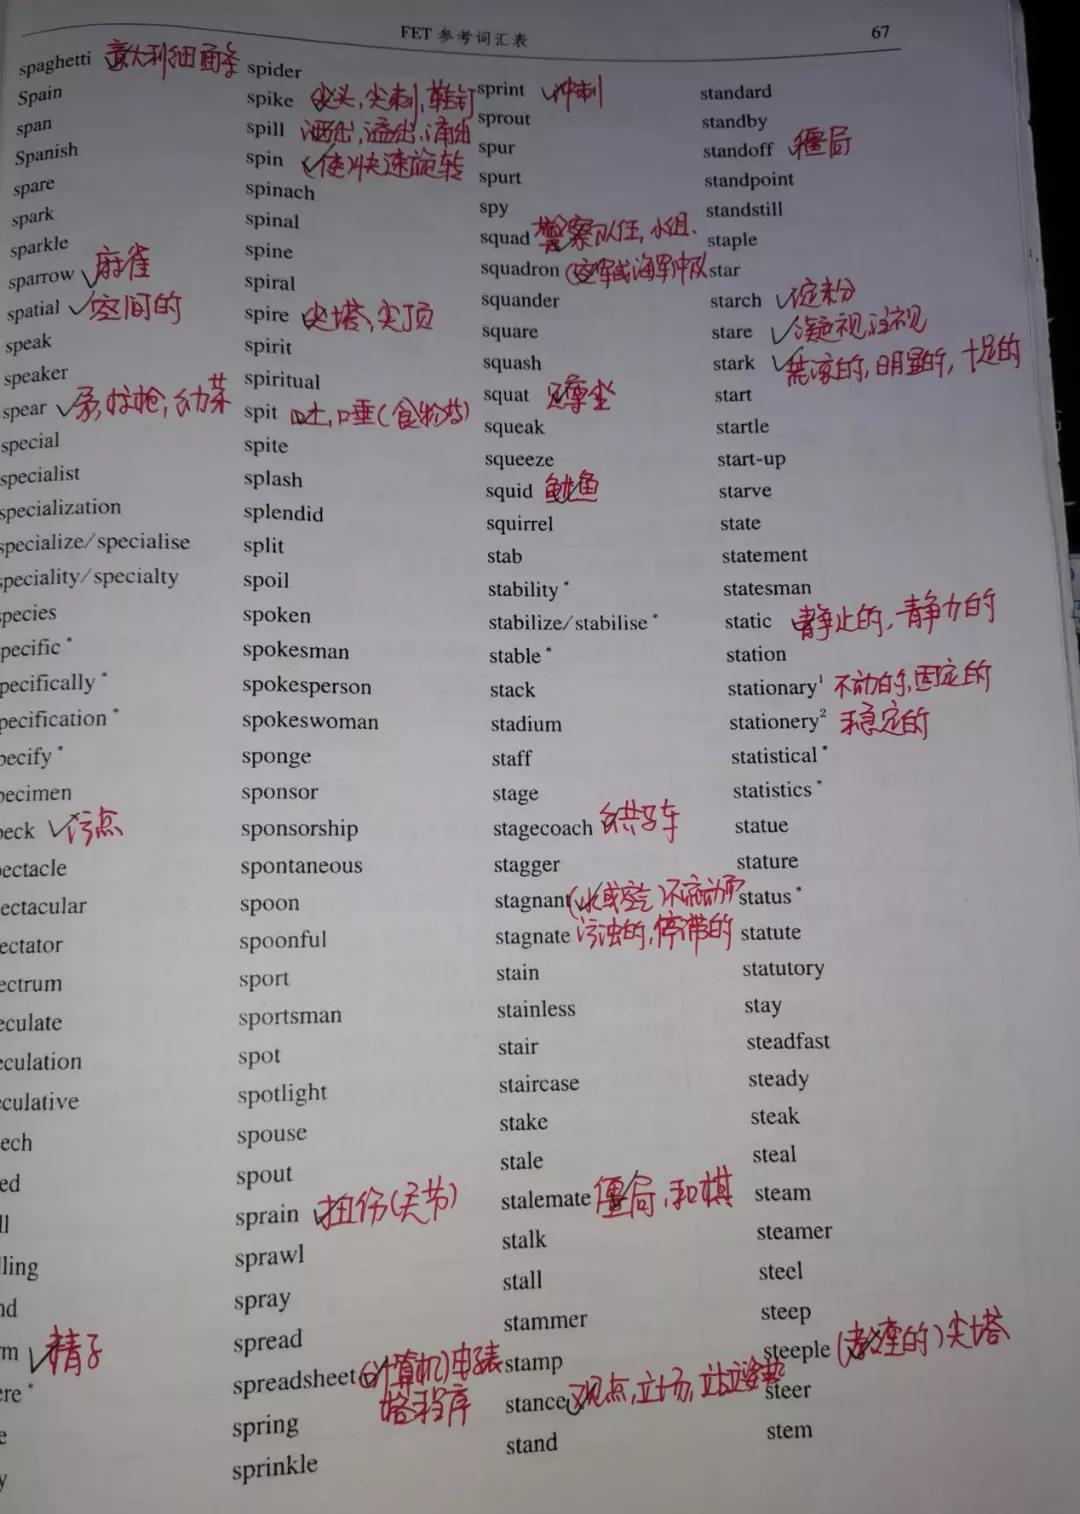 FET 参考词汇表
67
spaghetti 意大利细面条
Spain
span
Spanish
spare
spark
sparkle
sparrow 麻雀
spatial 空间的
speak
speaker
spear 矛,标枪,幼
special
specialist
specialization
specialize/specialise
speciality/specialty
species
pecific*
pecifically*
pecification*
pecify*
pecimen
peck 污点
pectacle
ectacular
ectator
ectrum
eculate
eculation
culative
ech
ed
ll
lling
nd
rm 精子
ere*
e
y
spider
spike 尖头,尖刺,鞋钉
spill 洒出,溢出,涌出
spin (使)快速旋转
spinach
spinal
spine
spiral
spire 尖塔,尖顶
spirit
spiritual
spit 吐,唾(食物等)
spite
splash
splendid
split
spoil
spoken
spokesman
spokesperson
spokeswoman
sponge
sponsor
sponsorship
spontaneous
spoon
spoonful
sport
sportsman
spot
spotlight
spouse
spout
sprain 扭伤(关节)
sprawl
spray
spread
spreadsheet (计算机)电子表
格程序
spring
sprinkle
sprint 冲刺
sprout
spur
spurt
spy
squad 警察队伍,小组.
squadron (空军或海军中队
squander
square
squash
squat 蹲坐
squeak
squeeze
squid 鱿鱼
squirrel
stab
stability*
stabilize/stabilise*
stable*
stack
stadium
staff
stage
stagecoach 公共马车
stagger
stagnant (水或空气)不流动而
stagnate 污浊的,停滞的
stain
stainless
stair
staircase
stake
stale
stalemate 僵局,和棋
stalk
stall
stammer
stamp
stance 观点,立场,站立姿势
stand
standard
standby
standoff 僵局
standpoint
standstill
staple
star
starch 淀粉
stare 凝视,注视
stark 荒凉的,明显的,十足的
start
startle
start-up
starve
state
statement
statesman
static 静止的,静力的
station
stationary¹ 不动的,固定的
stationery² 稳定的
statistical*
statistics*
statue
stature
status*
statute
statutory
stay
steadfast
steady
steak
steal
steam
steamer
steel
steep
steeple (教堂的)尖塔
steer
stem